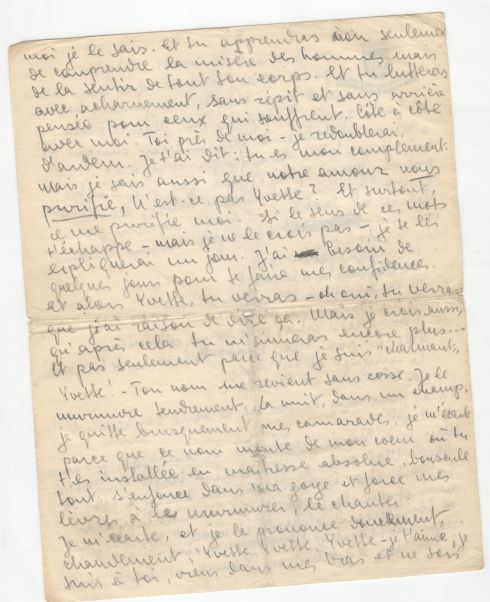 moi je le sais. Et tu apprendras non seulement
de comprendre la misère des hommes mais
de la sentir de tout ton corps. Et tu lutteras
avec acharnement, sans répit et sans arrière
pensée pour ceux qui souffrent. Côte à côte
avec moi. Toi près de moi - je redoublerai
d'ardeur. Je t'ai dit: tu es mon complément.
Mais je sais aussi que notre amour nous
purifie, N'est-ce pas Yvette? Et surtout,
ce me purifie moi. Si le sens de ces mots
t'échappe - mais je ne le crois pas - je te les
expliquerai un jour. J'ai besoin de
quelques jours pour te faire mes confidences.
et alors Yvette, tu verras - oh oui, tu verras
que j'ai raison de dire ça. Mais je crois aussi,
qu'après cela tu m'aimeras encore plus...
Et pas seulement parce que je suis "charmant".
Yvette! - Ton nom me revient sans cesse. Je le
murmure tendrement. La nuit, dans un champ,
je quitte brusquement mes camarades, je m'écarte
parce que ce nom monte de mon coeur où tu
t'es installée en maîtresse absolue, bouscule
tout, s'enfonce dans ma gorge et force mes
lèvres à le murmurer, le chanter.
Je m'écarte, et je le prononce doucement,
chaudement. Yvette, Yvette, Yvette - je t'aime, je
suis à toi, viens dans mes bras et ne sois